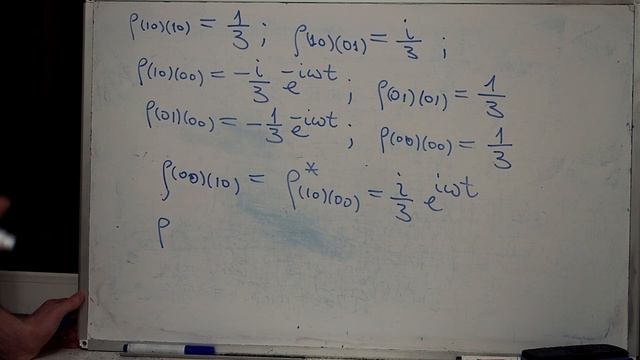 ρ(10)(10) = 1/3 ; ρ(10)(01) = i/3 ;
ρ(10)(00) = -i/3 e^-iωt ; ρ(01)(01) = 1/3
ρ(01)(00) = -1/3 e^-iωt ; ρ(00)(00) = 1/3
ρ(00)(10) = ρ*(10)(00) = i/3 e^iωt
ρ